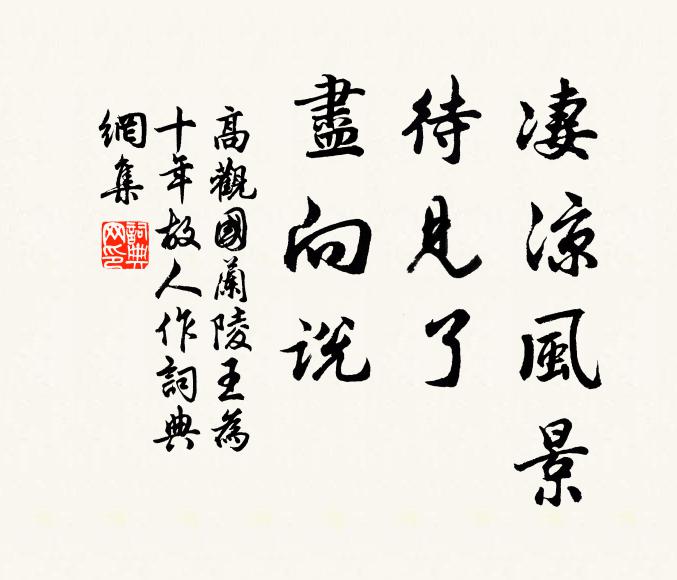 凄涼風景
待見了
盡向説
高觀國蘭陵王為
十年故人作詞典
網集
詞典网印